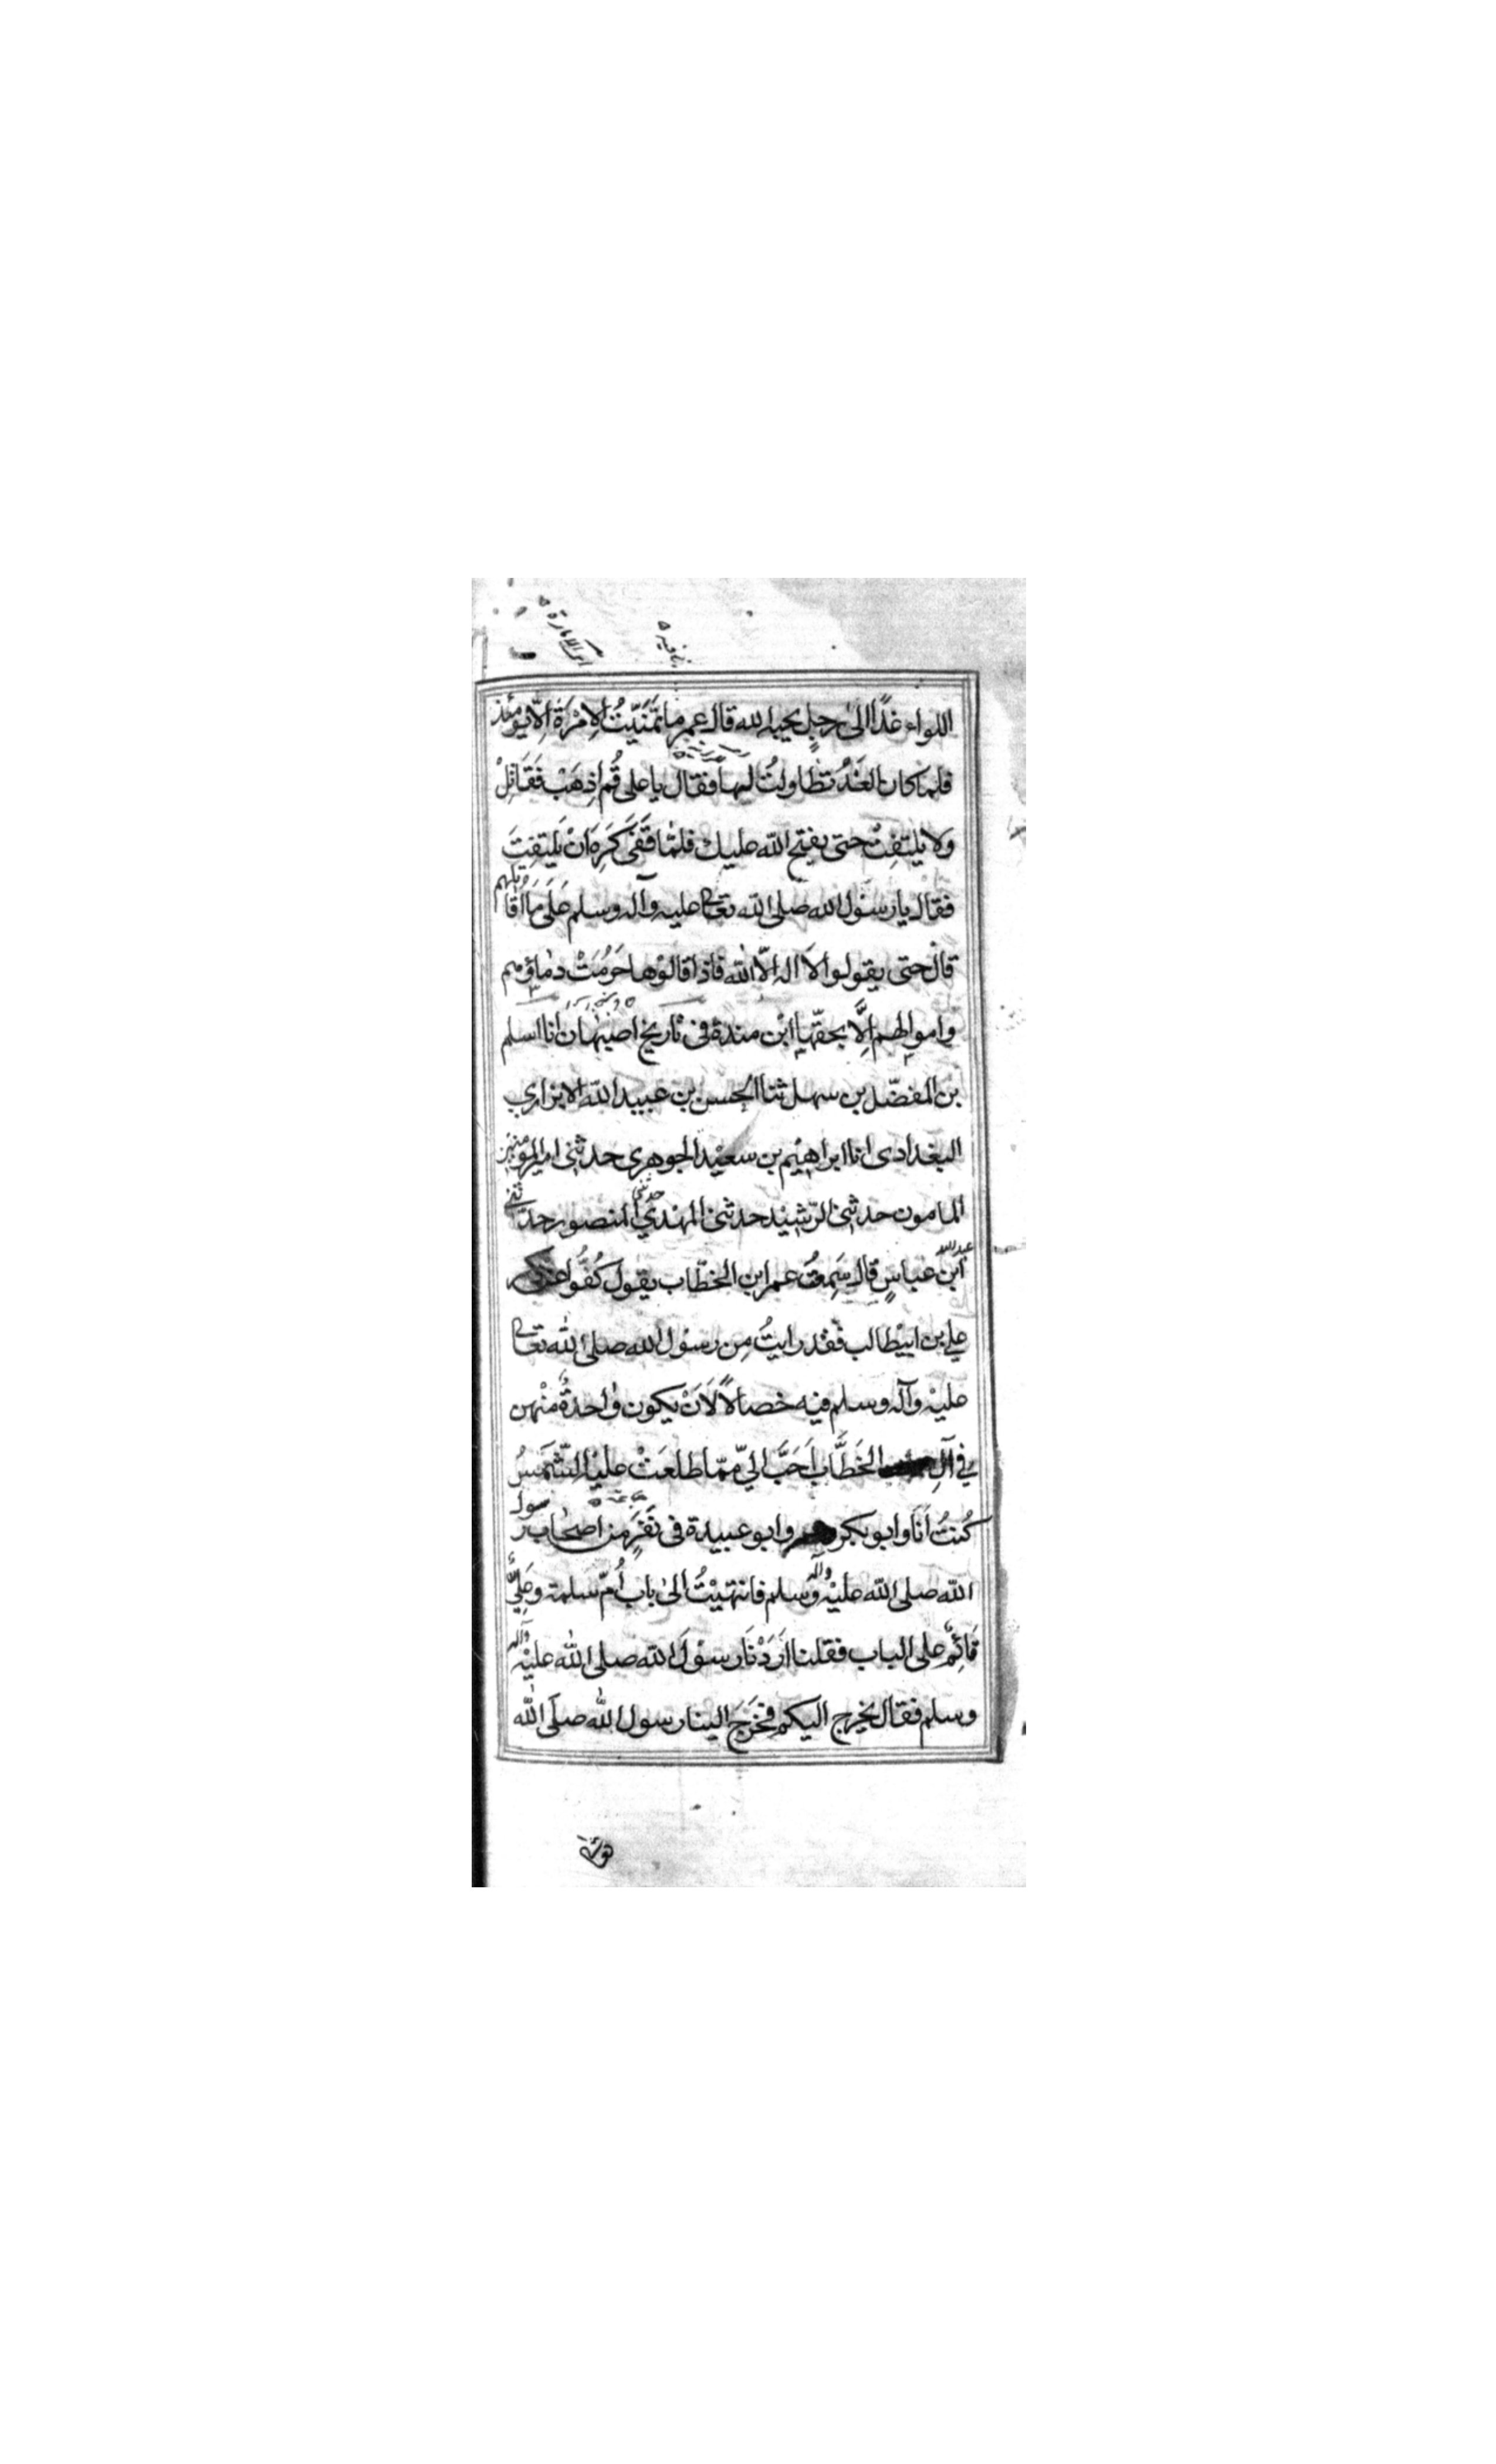 اللواء غدًا الى رجل يحبه الله قال عمر ما تمنّيتُ الإمْرَةَ اِلّا يومئذ
فلما كان الغدُ تطاولتُ لها فقال يا على قُم اذهَبْ فَقَاتِلْ
ولا يلتفتْ حتى يفتح الله عليك فلمّا قَفَى كَرِهَ اَنْ يَلْتفِتَ
فقال يا رسول الله صلى الله تعالى عليه وآله وسلم عَلَى مَا اُقاتِلُهم
قال حتى يقولوا لا اله الّا الله فاذا قالوْها حَرُمَتْ دماؤهم
واموالهم اِلَّا بحقّها ابن مندة فى تاريخ اصبهان انا اسلم
بن المفضّل بن سهل ثنا الحسن بن عبيد الله الابزاري
البغدادى انا ابراهيم بن سعيد الجوهرى حدثنى امير المومنين
المامون حدثنى الرّشيد حدثنى المهدي حدثنى المنصور حدثنى
عبد الله ابن عباسٍ قال سَمِعتُ عمر ابن الخطّاب يقول كُفُّوا عن
علي بن ابيطالب فقد رايتُ مِن رسول الله صلى الله تعالى
عليه وآله وسلم فيه خصالاً لَاَنْ يكون واحدةٌ منْهن
في آلِ الخَطَّابِ اَحَبَّ اليّ ممّا طلعَتْ عليه الشّمسُ
كُنتُ اَنَا وابو بكر وابو عبيدة فى نَفَرٍ من اصحاب رسول
الله صلى الله عليه وآله وسلم فانتهيْتُ الىٰ باب اُمّ سلمة وعَلِيٌّ
قائِمٌ على الباب فقلنا اَرَدْنَا رسوْلَ الله صلى الله عليه وآله
وسلم فقال يخرج اليكم فخَرَجَ الينا رسول الله صلّى الله